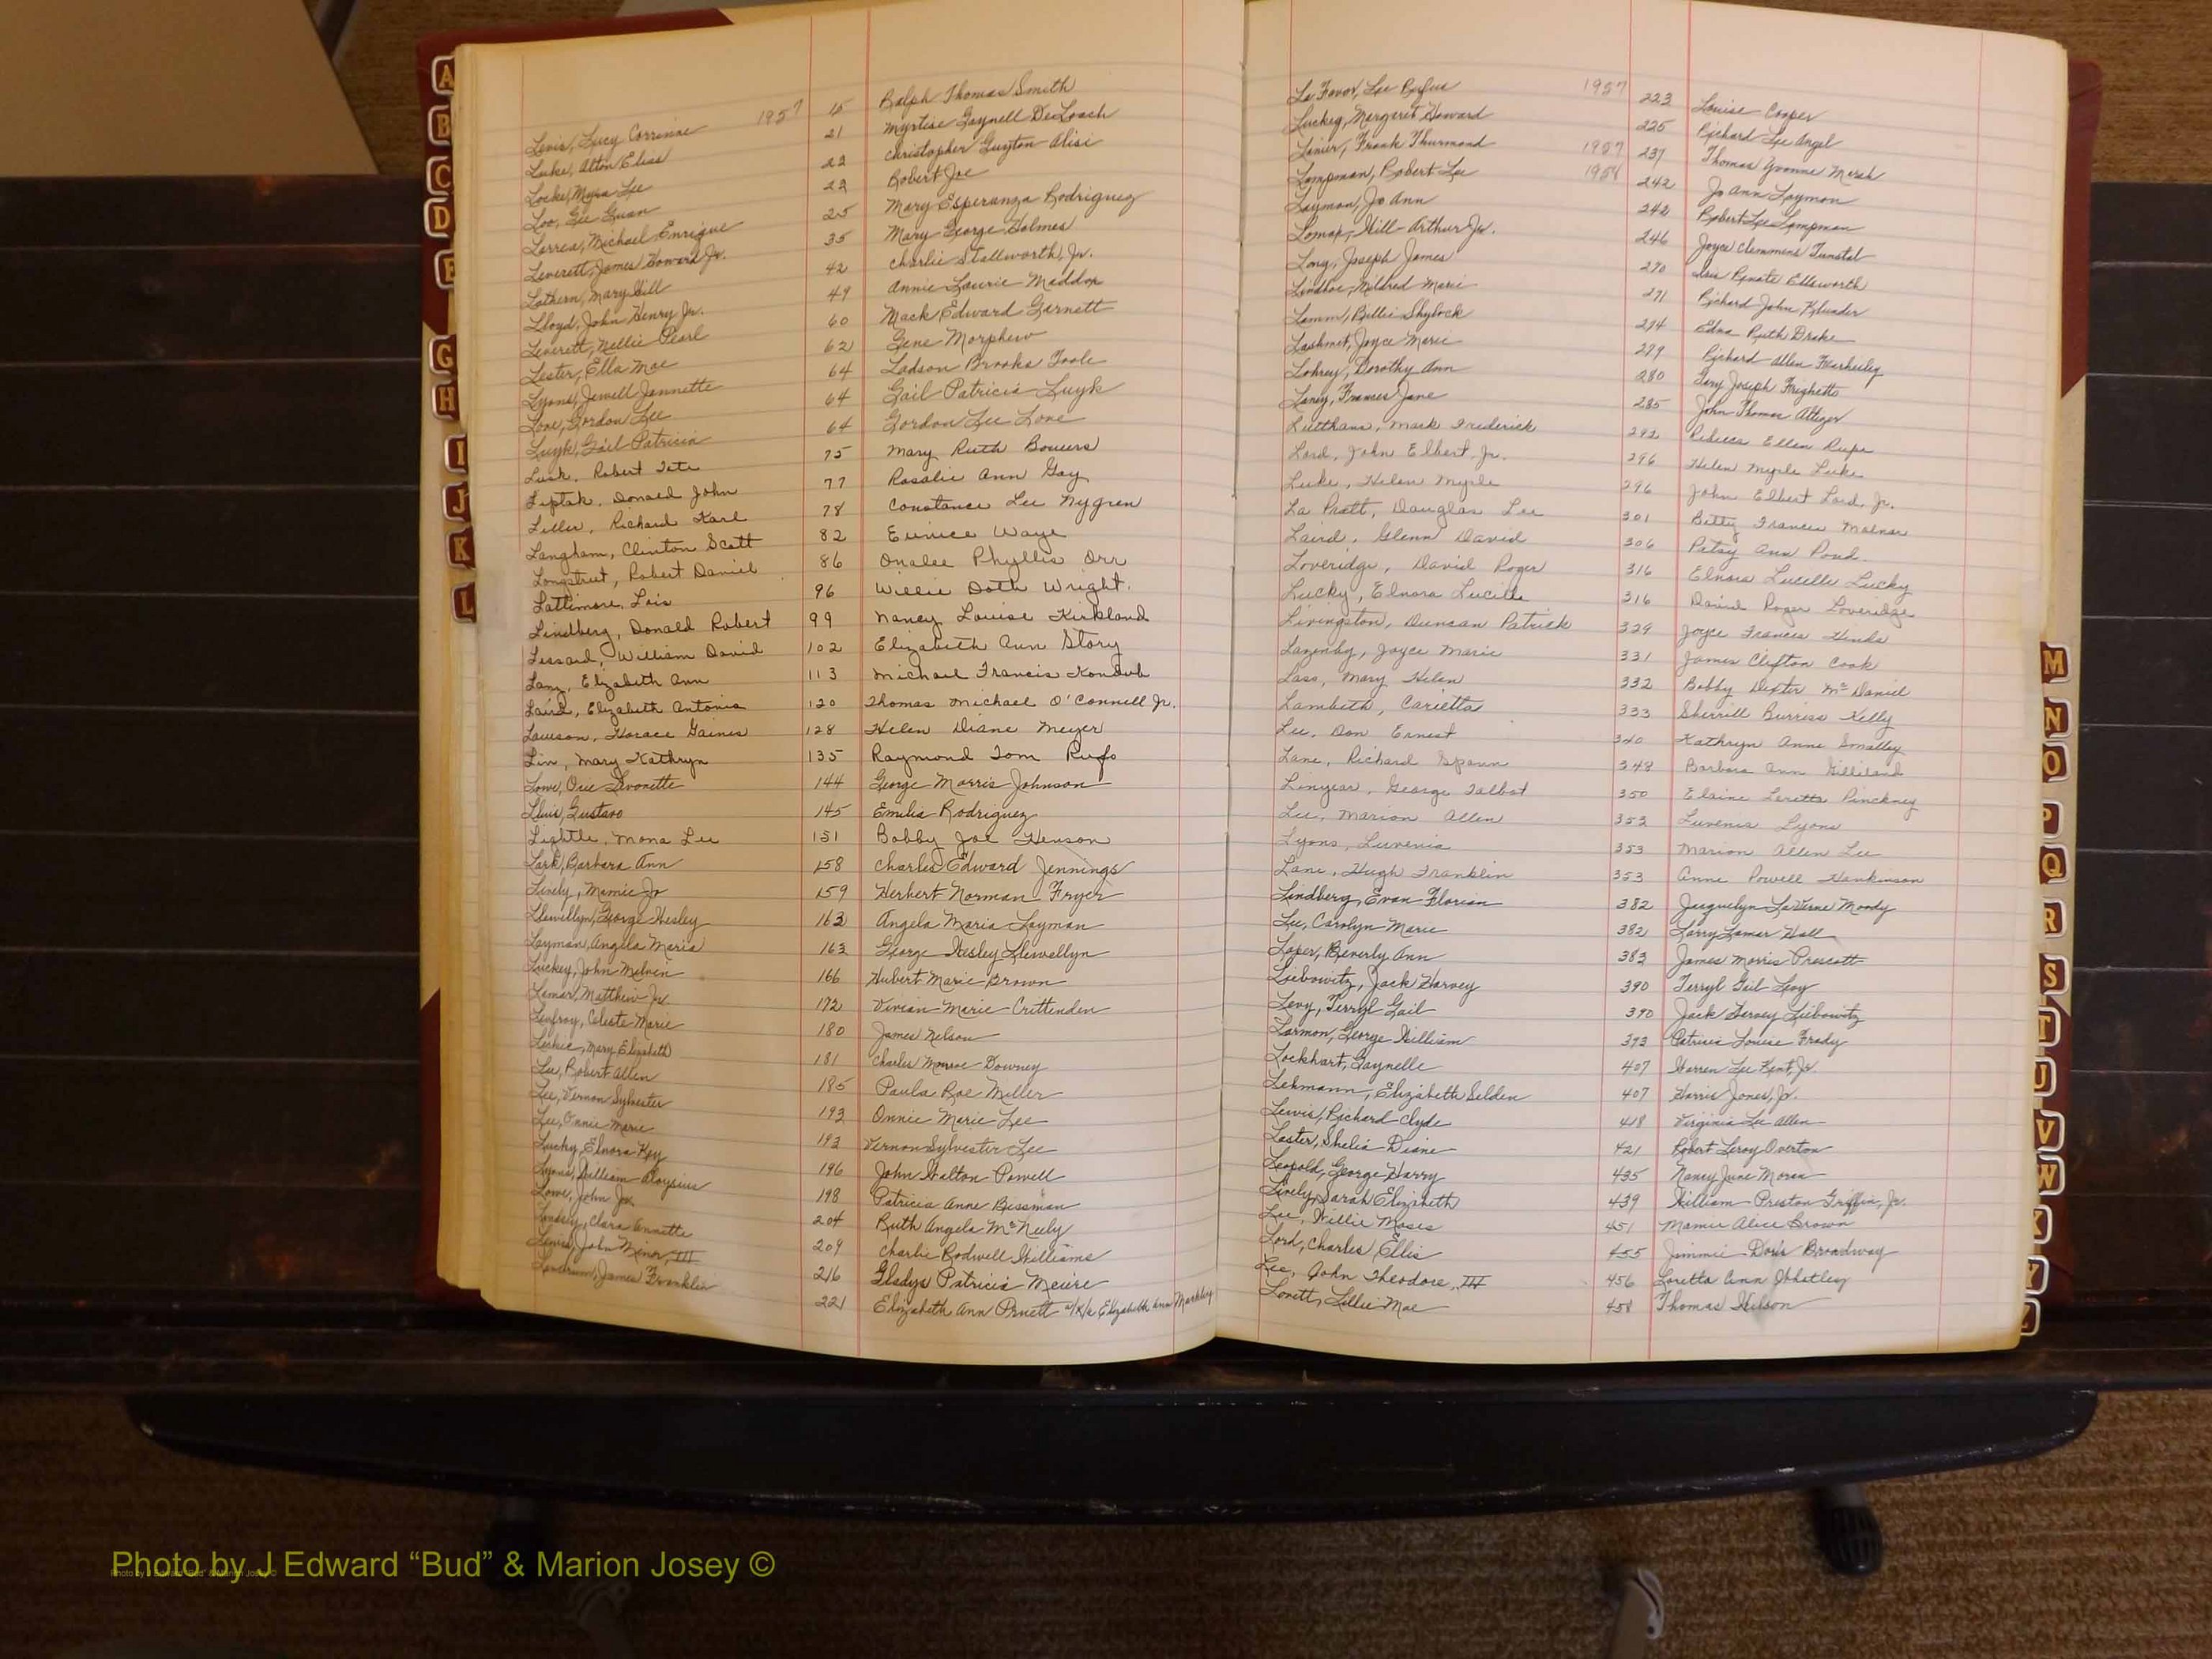 A
B
C
D
E
G
H
I
J
K
L
1957
Levis, Lucy Corrinne 15 Ralph Thomas Smith
Luke, Alton Elias 21 Myrtise Gaynell DeLoach
Locke, Myra Lee 22 Christopher Guyton Alisi
Loo, Gee Guan 22 Robert Joe
Larrea, Michael Enrique 25 Mary Esperanza Rodriguez
Leverett, James Howard Jr. 35 Mary George Holmes
Lathern, Mary Will 42 Charlie Stallworth, Jr.
Lloyd, John Henry Jr. 49 Annie Laurie Maddox
Leverett, Nellie Pearl 60 Mack Edward Garnett
Lester, Ella Mae 62 Gene Morphew
Lyons, Jewell Jannette 64 Ladson Brooks Toole
Love, Gordon Lee 64 Gail Patricia Luyk
Luyk, Gail Patricia 64 Gordon Lee Love
Lusk, Robert Tate 75 Mary Ruth Bowers
Liptak, Donald John 77 Rosalie Ann Gay
Liller, Richard Karl 78 Constance Lee Nygren
Langham, Clinton Scott 82 Eunice Waye
Longstreet, Robert Daniel 86 Onalee Phyllis Orr
Lattimore, Lois 96 Willie Doth Wright.
Lindberg, Donald Robert 99 Nancy Louise Kirkland
Lessard, William David 102 Elizabeth Ann Story
Lang, Elizabeth Ann 113 Michael Francis Kondub
Laird, Elizabeth Antonia 120 Thomas Michael O'Connell Jr.
Lawson, Horace Gaines 128 Helen Diane Meyer
Lin, Mary Kathryn 135 Raymond Tom Rufo
Lowe, Ovie Livonette 144 George Morris Johnson
Lluis, Gustavo 145 Emilia Rodriguez
Lightle, Mona Lee 151 Bobby Joe Henson
Lark, Barbara Ann 158 Charles Edward Jennings
Lively, Mamie Jo 159 Herbert Norman Fryer
Llewellyn, George Wesley 163 Angela Maria Layman
Layman, Angela Maria 163 George Wesley Llewellyn
Luckey, John Melvin 166 Hubert Marie Brown
Lamar, Matthew Jr. 172 Vivian Marie Crittenden
Lenfroy, Celeste Marie 180 James Nelson
Leckie, Mary Elizabeth 181 Charles Monroe Downey
Lee, Robert Allen 185 Paula Rae Miller
Lee, Vernon Sylvester 193 Onnie Marie Lee
Lee, Onnie Marie 193 Vernon Sylvester Lee
Lucky, Elnora Key 196 John Walton Powell
Lyons, William Aloysius 198 Patricia Anne Bessman
Lowe, John Jr. 204 Ruth Angela McNeely
Lindsey, Clara Annette 209 Charlie Rodwell Williams
Lewis, John Minor, III 216 Gladys Patricia Meire
Landrum, James Franklin 221 Elizabeth Ann Pruett a/k/a Elizabeth Ann Markley
La Favor, Lee Rufus 1957 223 Louise Cooper
Luckey, Margaret Howard 225 Richard Lee Angel
Linier, Frank Thurmond 1957 237 Thomas Yvonne Marsh
Lampman, Robert Lee 1958 242 Jo Ann Layman
Layman, Jo Ann 242 Robert Lee Lampman
Lomax, Will Arthur Jr. 246 Joyce Clemmens Tunstal
Long, Joseph James 270 Renate Ellsworth
Lindhoe, Mildred Marie 271 Richard John Klunder
Lamm, Billie Shylock 274 Edna Ruth Drake
Lashmet, Joyce Marie 279 Richard Allen
Lohrey, Dorothy Ann 280 Gary Joseph Frighetto
Laney, Frances Jane 285 John Thomas Attiger
Lutthans, Mark Frederick 292 Rebecca Ellen Rupe
Lord, John Elbert, Jr. 296 Helen Myrle Luke
Luke, Helen Myrle 296 John Elbert Lord, Jr.
La Pratt, Douglas Lee 301 Betty Frances Molnar
Laird, Glenn David 306 Patsy Ann Pond
Loveridge, David Roger 316 Elnora Lucille Lucky
Lucky, Elnora Lucille 316 David Roger Loveridge
Livingston, Duncan Patrick 329 Joyce Frances Hinks
Lazenby, Joyce Marie 331 James Clifton Cook
Lass, Mary Helen 332 Bobby Dexter McDaniel
Lambeth, Carietta 333 Sherrill Burriss Kelly
Lee, Don Ernest 340 Kathryn Anne Smalley
Lane, Richard Spann 348 Barbara Ann Gilliland
Linyear, George Talbot 350 Elaine Loretta Pinckney
Lee, Marion Allen 353 Luvenia Lyons
Lyons, Luvenia 353 Marion Allen Lee
Lane, Hugh Franklin 353 Anne Powell Hankinson
Lindberg, Evan Florian 382 Jacquelyn LaVerne Moody
Lee, Carolyn Marie 382 Larry Lamar Hall
Loper, Beverly Ann 383 James Morris Prescott
Liebowitz, Jack Harvey 390 Terryl Gail Levy
Levy, Terryl Gail 390 Jack Harvey Liebowitz
Larmon, George William 393 Patricia Louise Frady
Lockhart, Gaynelle 407 Warren Lee Kent, Jr.
Lehmann, Elizabeth Selden 407 Harris Jones, Jr.
Lewis, Richard Clyde 418 Virginia Lee Allen
Laster, Shelia Diane 421 Robert Leroy Overton
Leopold, George Harry 435 Nancy June Moran
Lively, Sarah Elizabeth 439 William Preston Griffin, Jr.
Lee, Willie Moses 451 Mamie Alice Brown
Lord, Charles Ellis 455 Jimmie Doris Broadway
Lee, John Theodore, III 456 Loretta Ann Whatley
Lovett, Lillie Mae 458 Thomas Wilson
M
N
O
P
Q
R
S
T
U
V
W
X
Y
Z
Photo by J Edward “Bud” & Marion Josey ©
Photo by J Edward “Bud” & Marion Josey ©